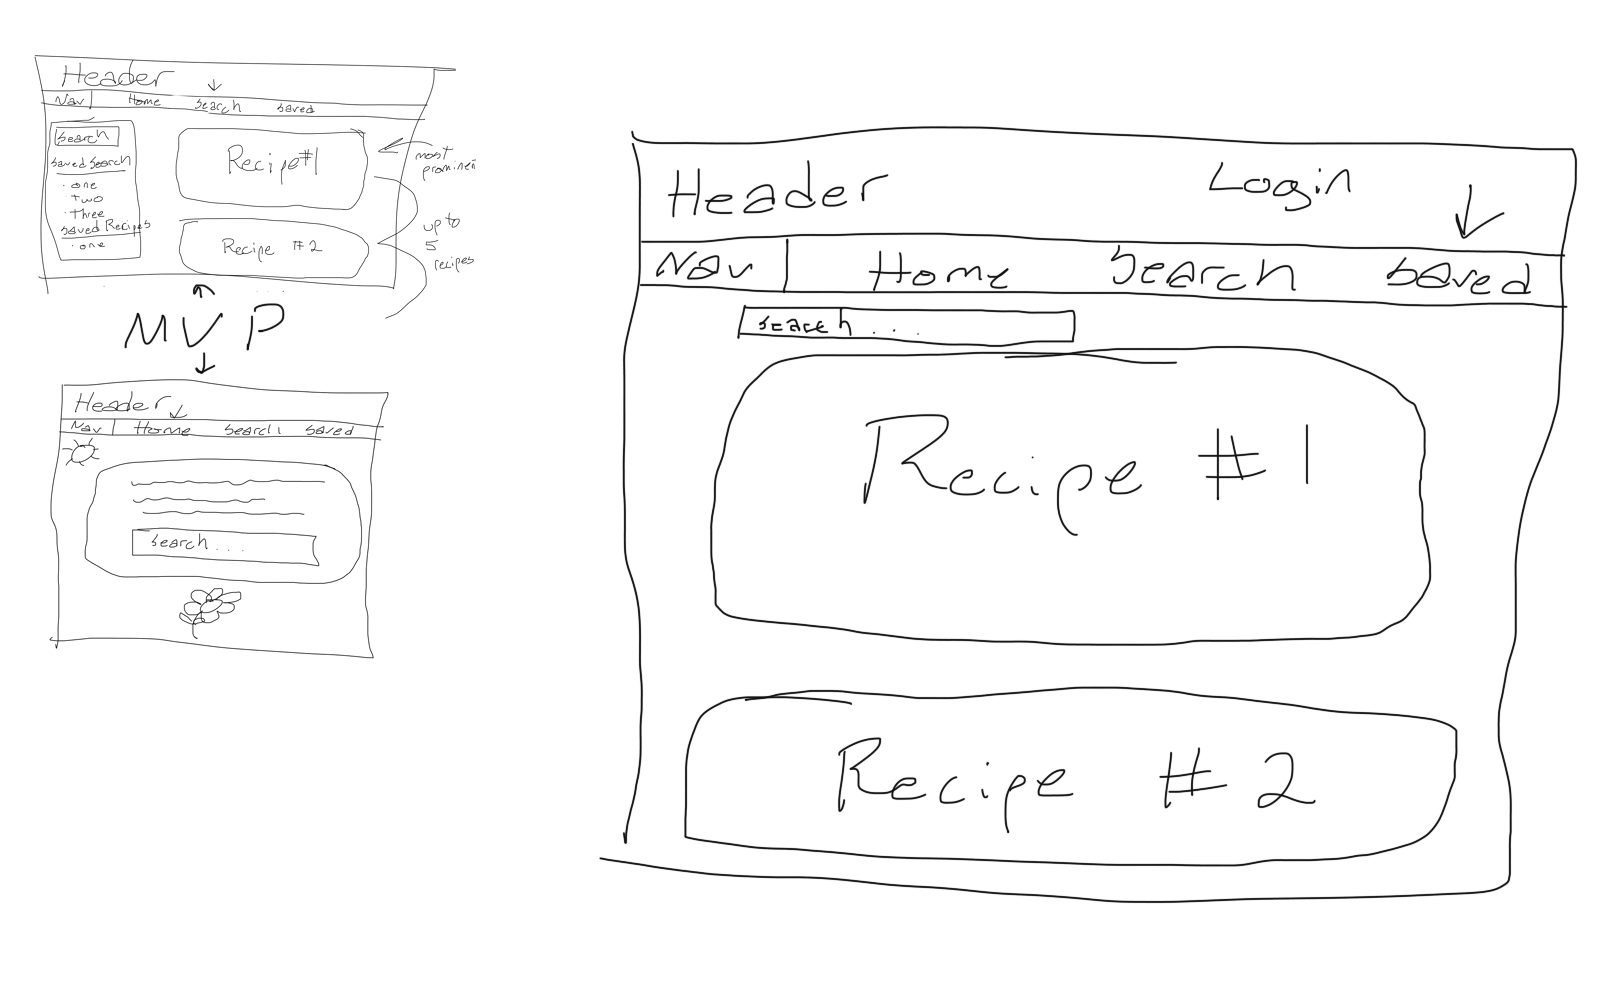 Header
Nav Home Search Saved
Search
Saved Search
· one
· two
· three
Saved Recipes
· one
Recipe #1
Recipe #2
most
prominen
up to
5
recipes
MVP
Header
Nav Home Search Saved
Search...
Header Login
Nav Home Search Saved
Search...
Recipe #1
Recipe #2